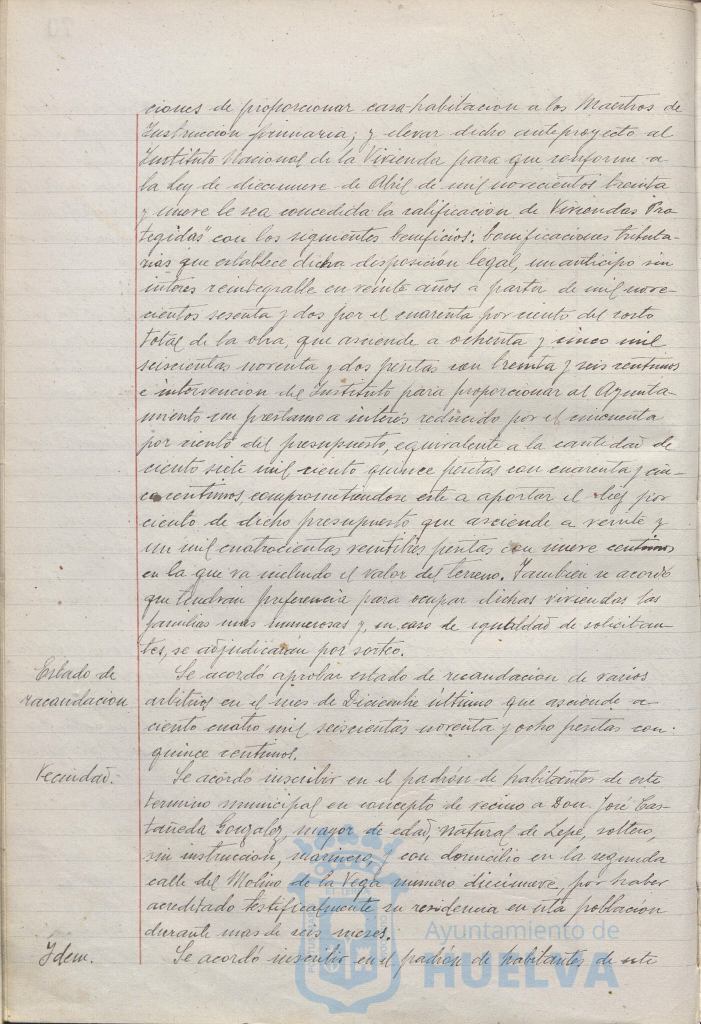 ciones de proporcionar casa-habitacion a los Maestros de
Instruccion primaria; y elevar dicho anteproyecto al
Instituto Nacional de la Vivienda para que conforme a
la Ley de diecinueve de Abril de mil novecientos treinta
y nueve le sea concedida la calificacion de Viviendas Pro-
tegidas" con los siguientes beneficios: bonificaciones tributa-
rias que establece dicha disposicion legal, un anticipo sin
interes reintegrable en veinte años a partir de mil nove-
cientos sesenta y dos por el cuarenta por ciento del costo
total de la obra, que asciende a ochenta y cinco mil
seiscientas noventa y dos pesetas con treinta y seis centimos
e intervencion del Instituto para proporcionar al Ayunta-
miento un prestamo a interés reducido por el cincuenta
por ciento del presupuesto, equivalente a la cantidad de
ciento siete mil ciento quince pesetas con cuarenta y cin-
co centimos, comprometiendose este a aportar el diez por
ciento de dicho presupuesto que asciende a veinte y
un mil cuatrocientas veintitres pesetas con nueve centimos
en la que va incluido el valor del terreno. Tambien se acordó
que tendran preferencia para ocupar dichas viviendas las
familias mas numerosas y, en caso de igualdad de solicitan-
tes, se adjudicarán por sorteo.
Estado de
recaudacion
Se acordó aprobar estado de recaudacion de varios
arbitrios en el mes de Diciembre último que asciende a
ciento cuatro mil seiscientas noventa y ocho pesetas con
quince centimos.
Vecindad.
Se acordó inscribir en el padrón de habitantes de este
termino municipal en concepto de vecino a Don José Cas-
tañeda Gonzalez, mayor de edad, natural de Lepe, soltero,
sin instruccion, marinero, y con domicilio en la segunda
calle del Molino de la Vega numero diecinueve, por haber
acreditado testificalmente su residencia en esta poblacion
durante mas de seis meses.
Ydem.
Se acordó inscribir en el padrón de habitantes de este
Ayuntamiento de
HUELVA